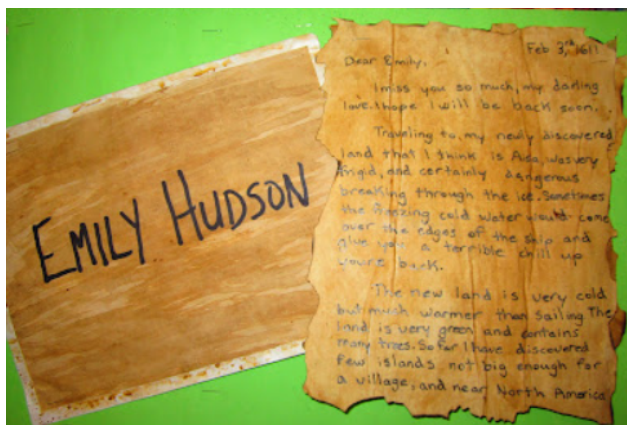 EMILY HUDSON
Feb 3,rd 1611
Dear Emily,
I miss you so much, my darling
love. I hope I will be back soon.
Traveling to, my newly discovered
land that I think is Asia, was very
frigid, and certainly dangerous
breaking through the ice. Sometimes
the freezing cold water would come
over the edges of the ship and
give you a terrible chill up
youre back.
The new land is very cold
but much warmer than sailing. The
land is very green and contains
many trees. So far I have discovered
few islands not big enough for
a village, and near North America